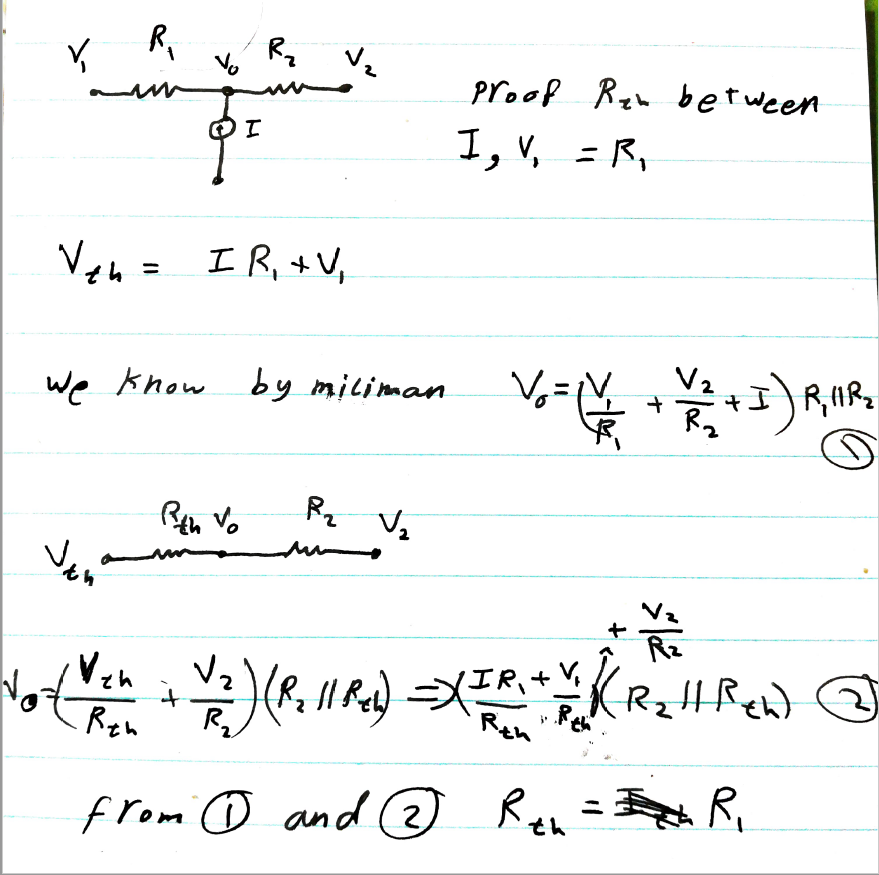 V₁ R₁ V₀ R₂ V₂
I
proof Rth between
I, V₁ = R₁
Vth = I R₁ + V₁
we know by miliman V₀ = (V₁/R₁ + V₂/R₂ + I) R₁||R₂
①
Rth V₀ R₂ V₂
Vth
+ V₂/R₂
V₀ = (Vth/Rth + V₂/R₂)(R₂ || Rth) => (I R₁/Rth + V₁/Rth)(R₂ || Rth) ②
from ① and ② Rth = R₁